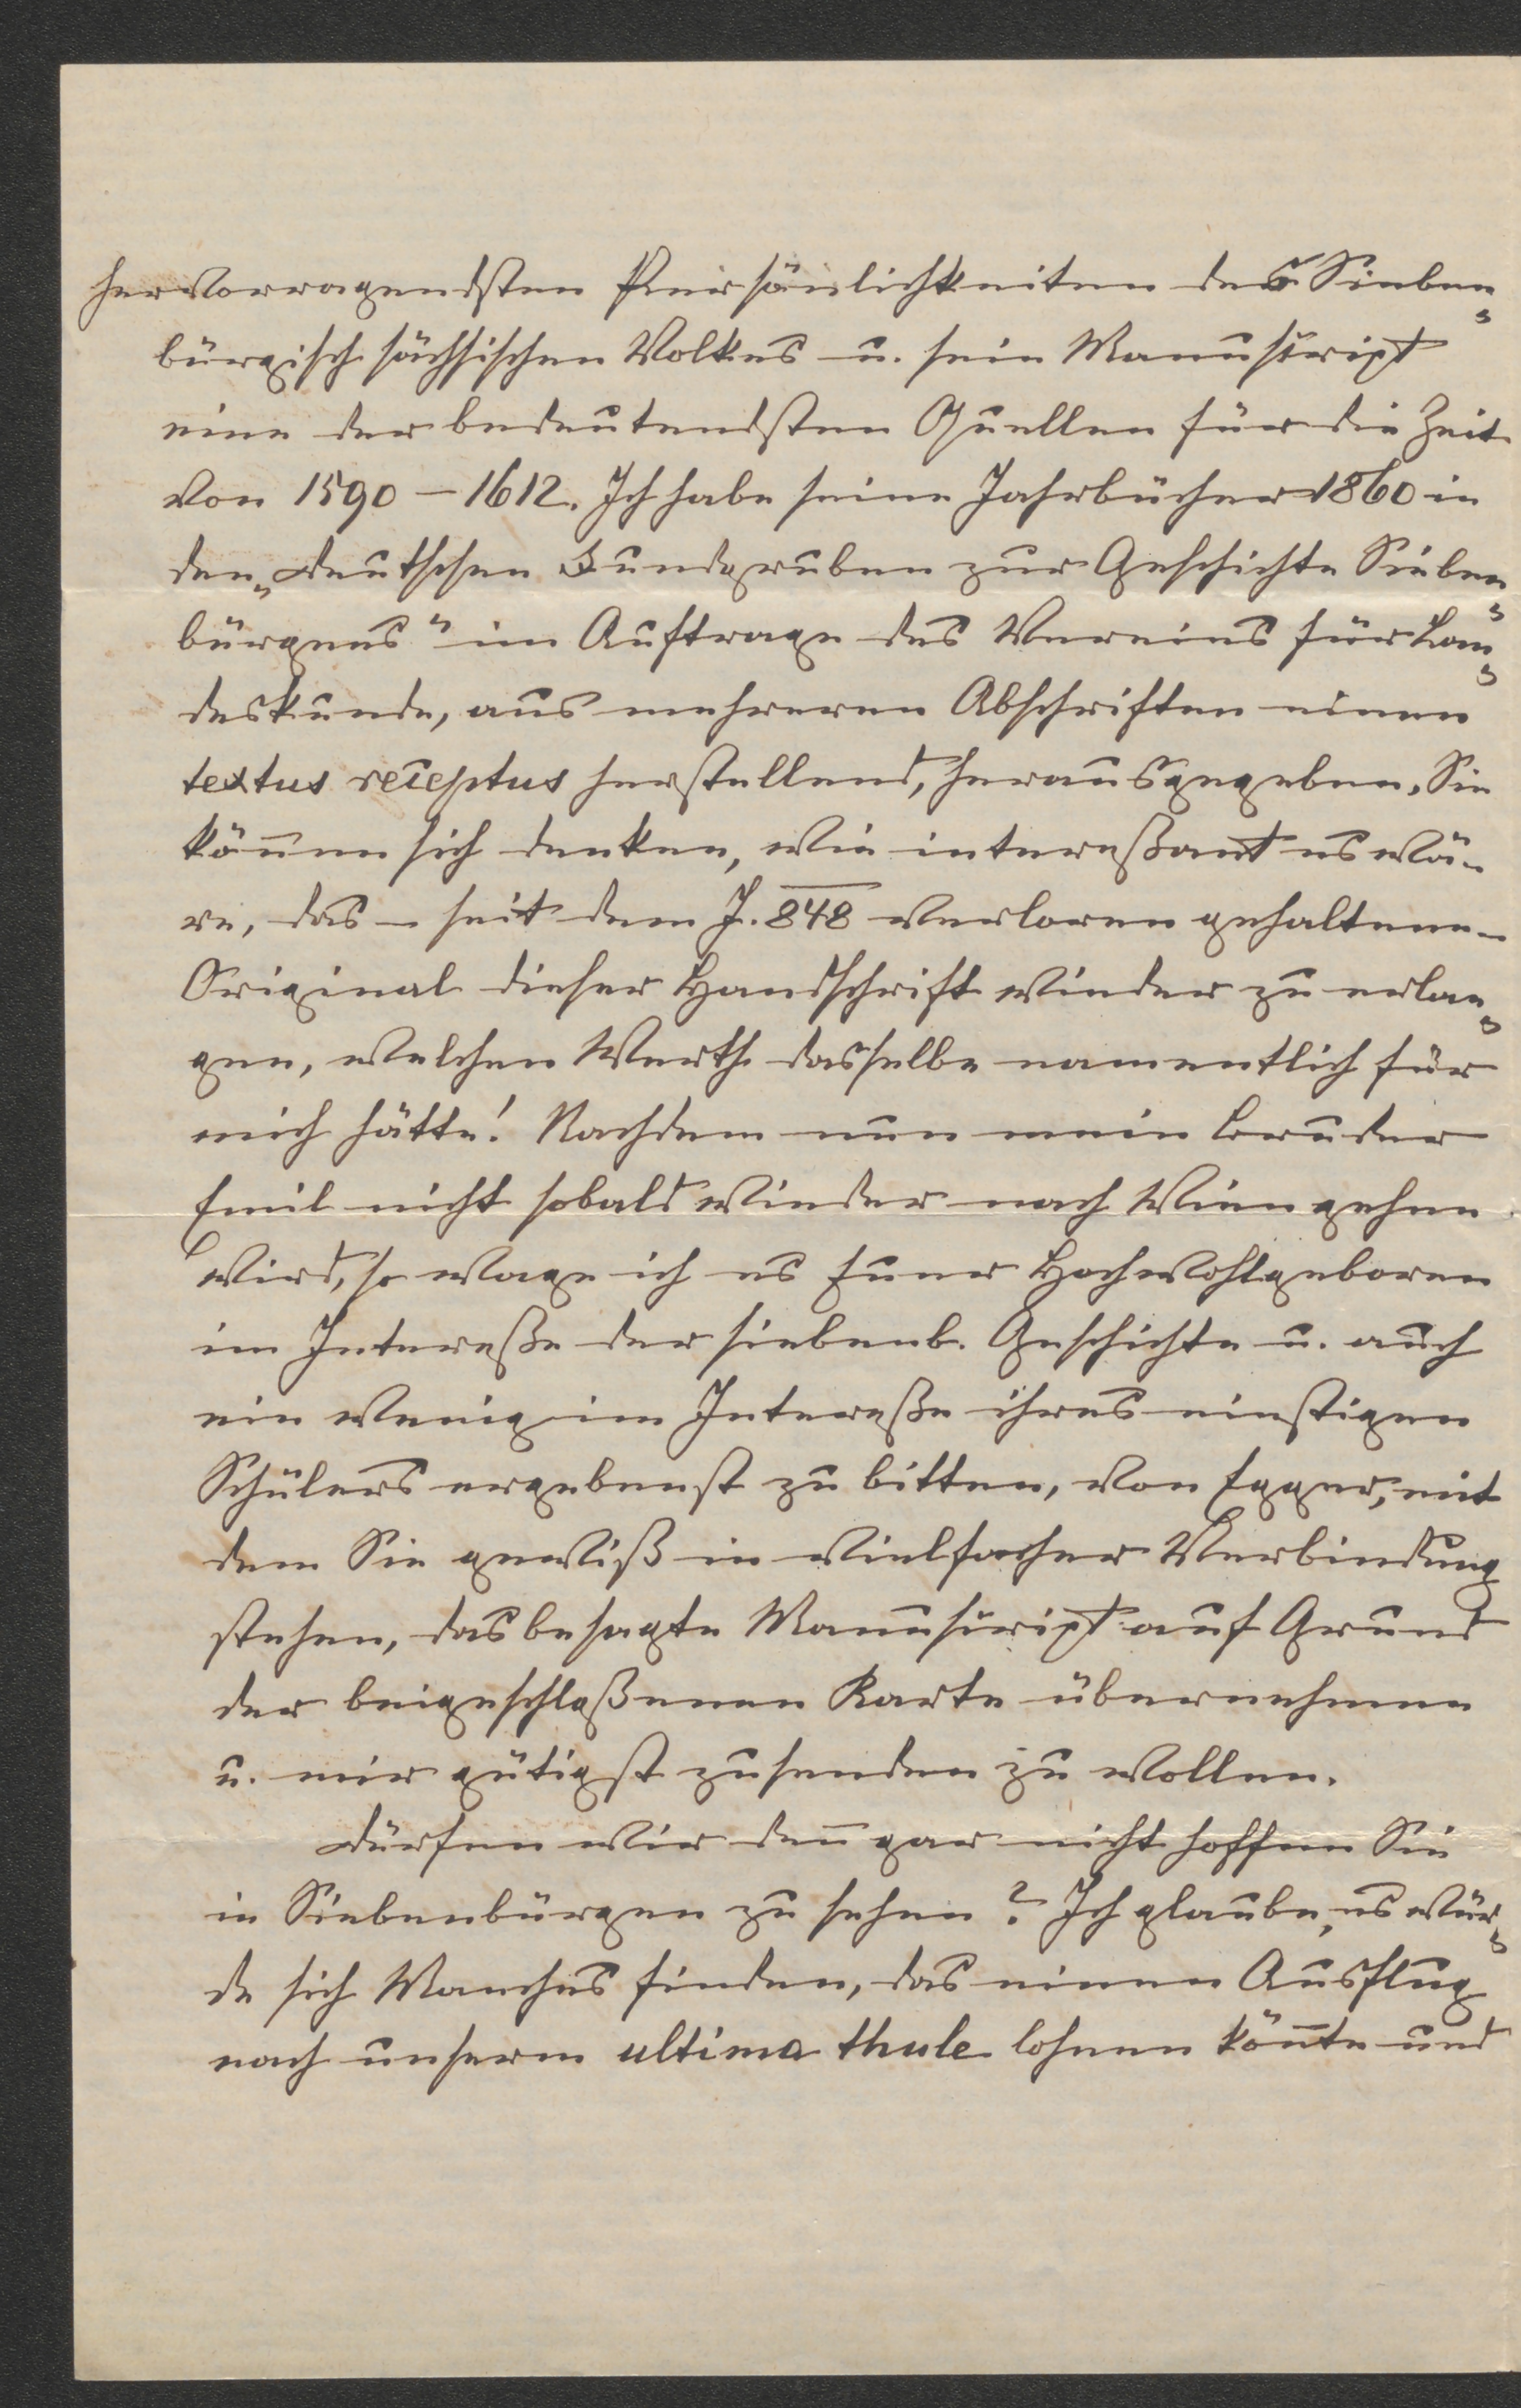 hervorragendsten Persönlichkeiten des Sieben-
bürgisch sächsischen Volkes u. sein Manuskript
eine der bedeutendsten Quellen für die Zeit
von 1590 – 1612. Ich habe seine Jahrbücher 1860 in
den „deutschen Fundgruben zur Geschichte Sieben-
bürgens" im Auftrage des Vereins für Lan-
deskunde, aus mehreren Abschriften einen
textus receptus herstellend, herausgegeben. Sie
kön̄en sich denken, wie intereßant es wä-
re, das – seit dem J. 848 verloren gehaltene –
Original dieser Handschrift wieder zu erlan-
gen, welchen Werth dasselbe namentlich für
mich hätte! Nachdem nun mein Bruder
Emil nicht sobald wieder nach Wien gehen
wird, so wage ich es Euer Hochwohlgeboren
im Intereße der siebenb. Geschichte u. auch
ein wenig im Intereße ihres einstigen
Schülers ergebenst zu bitten, von Egger, mit
dem Sie gewiß in vielfacher Verbindung
stehen, das besagte Manuscript auf Grund
der beigeschloßenen Karte übernehmen
u. mir gütigst zusenden zu wollen.
Dürfen wir den̄ gar nicht hoffen Sie
in Siebenbürgen zu sehen? Ich glaube, es wür-
de sich Manches finden, das einen Ausflug
nach unserem ultima thule lohnen kön̄te und